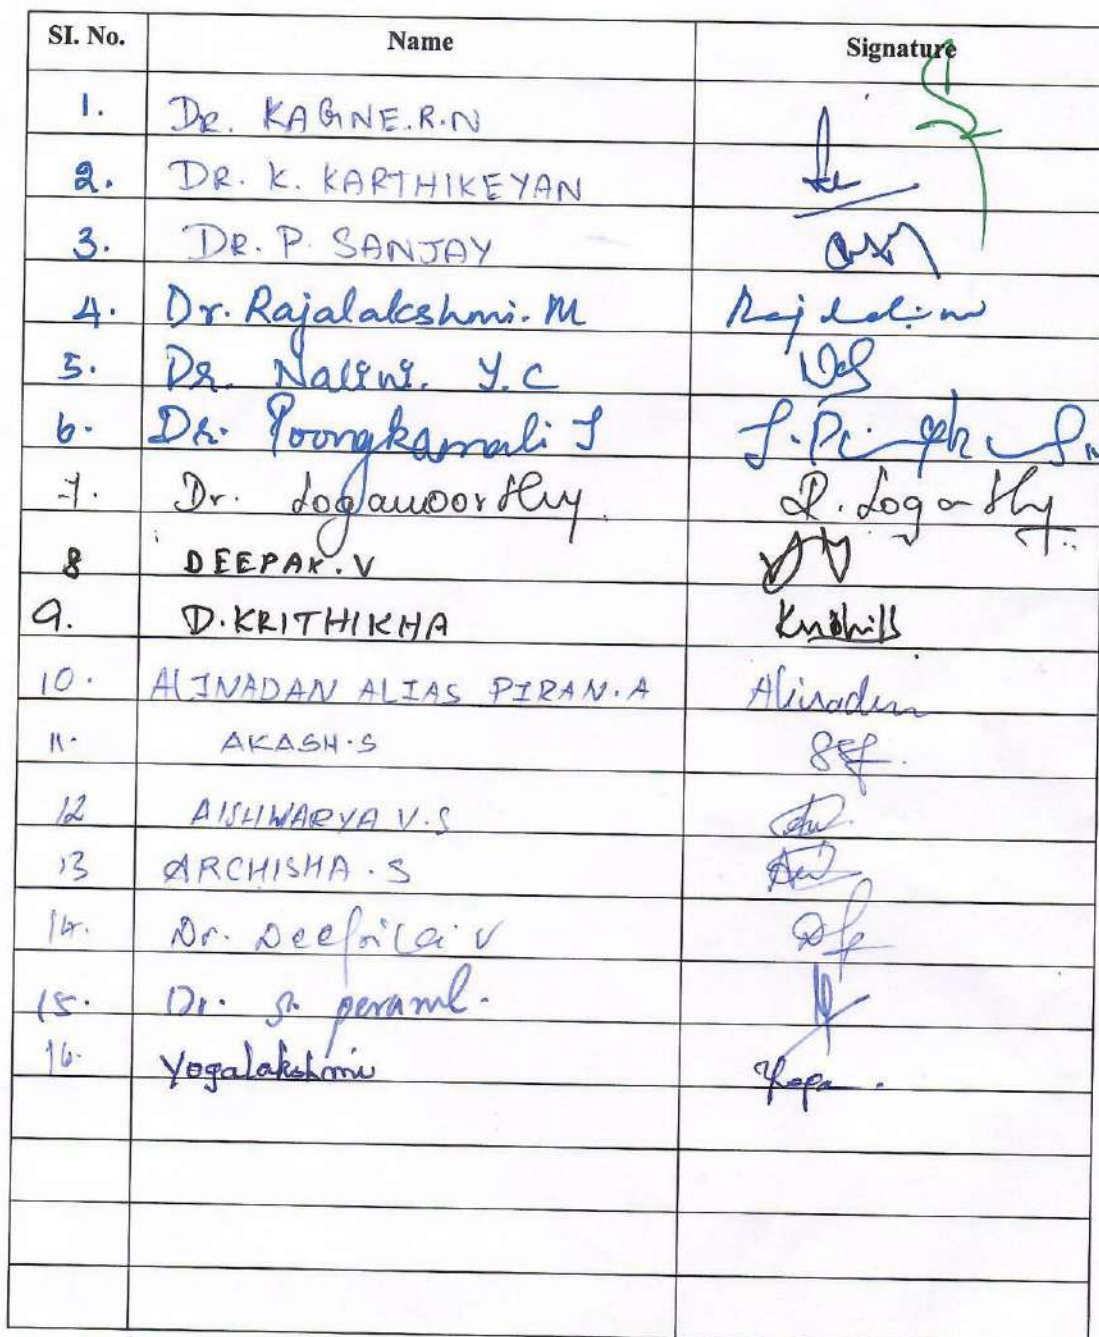 SI. No. Name Signature
1. Dr. KAGNE.R.N
2. DR. K. KARTHIKEYAN
3. DR. P. SANJAY
4. Dr. Rajalakshmi. M
5. Dr. Nalini. Y.C
6. Dr. Poongkamali J
7. Dr. Logamoorthy R. Logarthy
8 DEEPAK. V
9. D. KRITHIKHA
10. ALINADAN ALIAS PIRAN. A Alinadan
11. AKASH.S
12 AISHWARYA V.S
13 ARCHISHA. S
14. Dr. V
15. Dr.
16. Yogalakshmi Yoga.